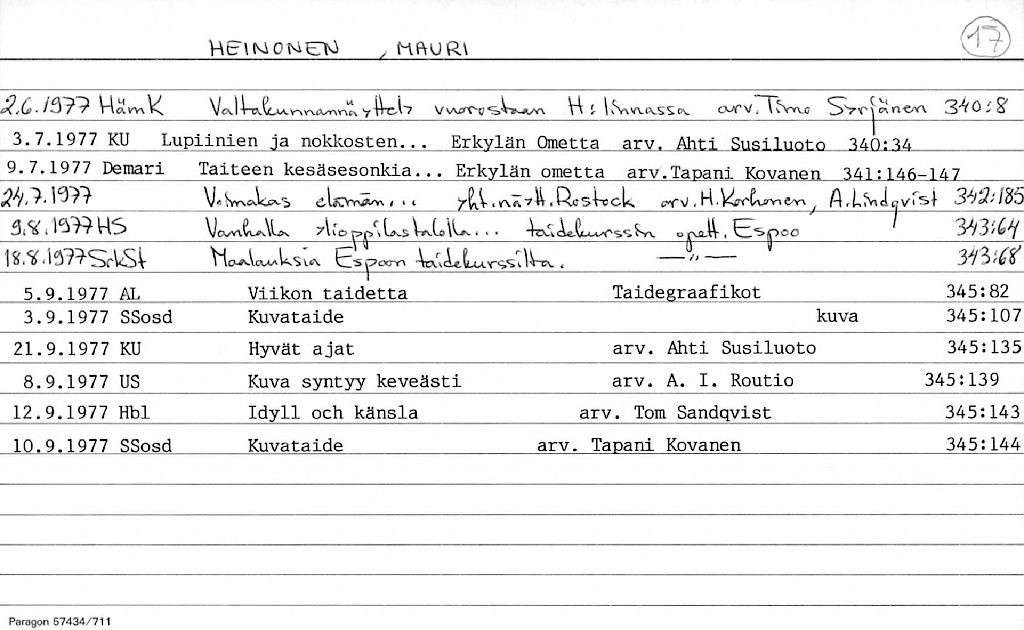 HEINONEN, MAURI 17
2.6.1977 HämK Valtakunnannäyttely vuorostaan H:linnassa arv. Timo Syrjänen 340:8
3.7.1977 KU Lupiinien ja nokkosten... Erkylän Ometta arv. Ahti Susiluoto 340:34
9.7.1977 Demari Taiteen kesäsesonkia... Erkylän ometta arv.Tapani Kovanen 341:146-147
24.7.1977 Voimakas elämän... yht.näytt. Rostock arv. H. Korhonen, A. Lindqvist 342:185
9.8.1977 HS Vanhalla ylioppilastalolla... taidekurssin opett. Espoo 343:64
18.8.1977 SrkSt Maalauksia Espoon taidekurssilta. —"— 343:68
5.9.1977 AL Viikon taidetta Taidegraafikot 345:82
3.9.1977 SSosd Kuvataide kuva 345:107
21.9.1977 KU Hyvät ajat arv. Ahti Susiluoto 345:135
8.9.1977 US Kuva syntyy keveästi arv. A. I. Routio 345:139
12.9.1977 Hbl Idyll och känsla arv. Tom Sandqvist 345:143
10.9.1977 SSosd Kuvataide arv. Tapani Kovanen 345:144
Paragon 57434/711